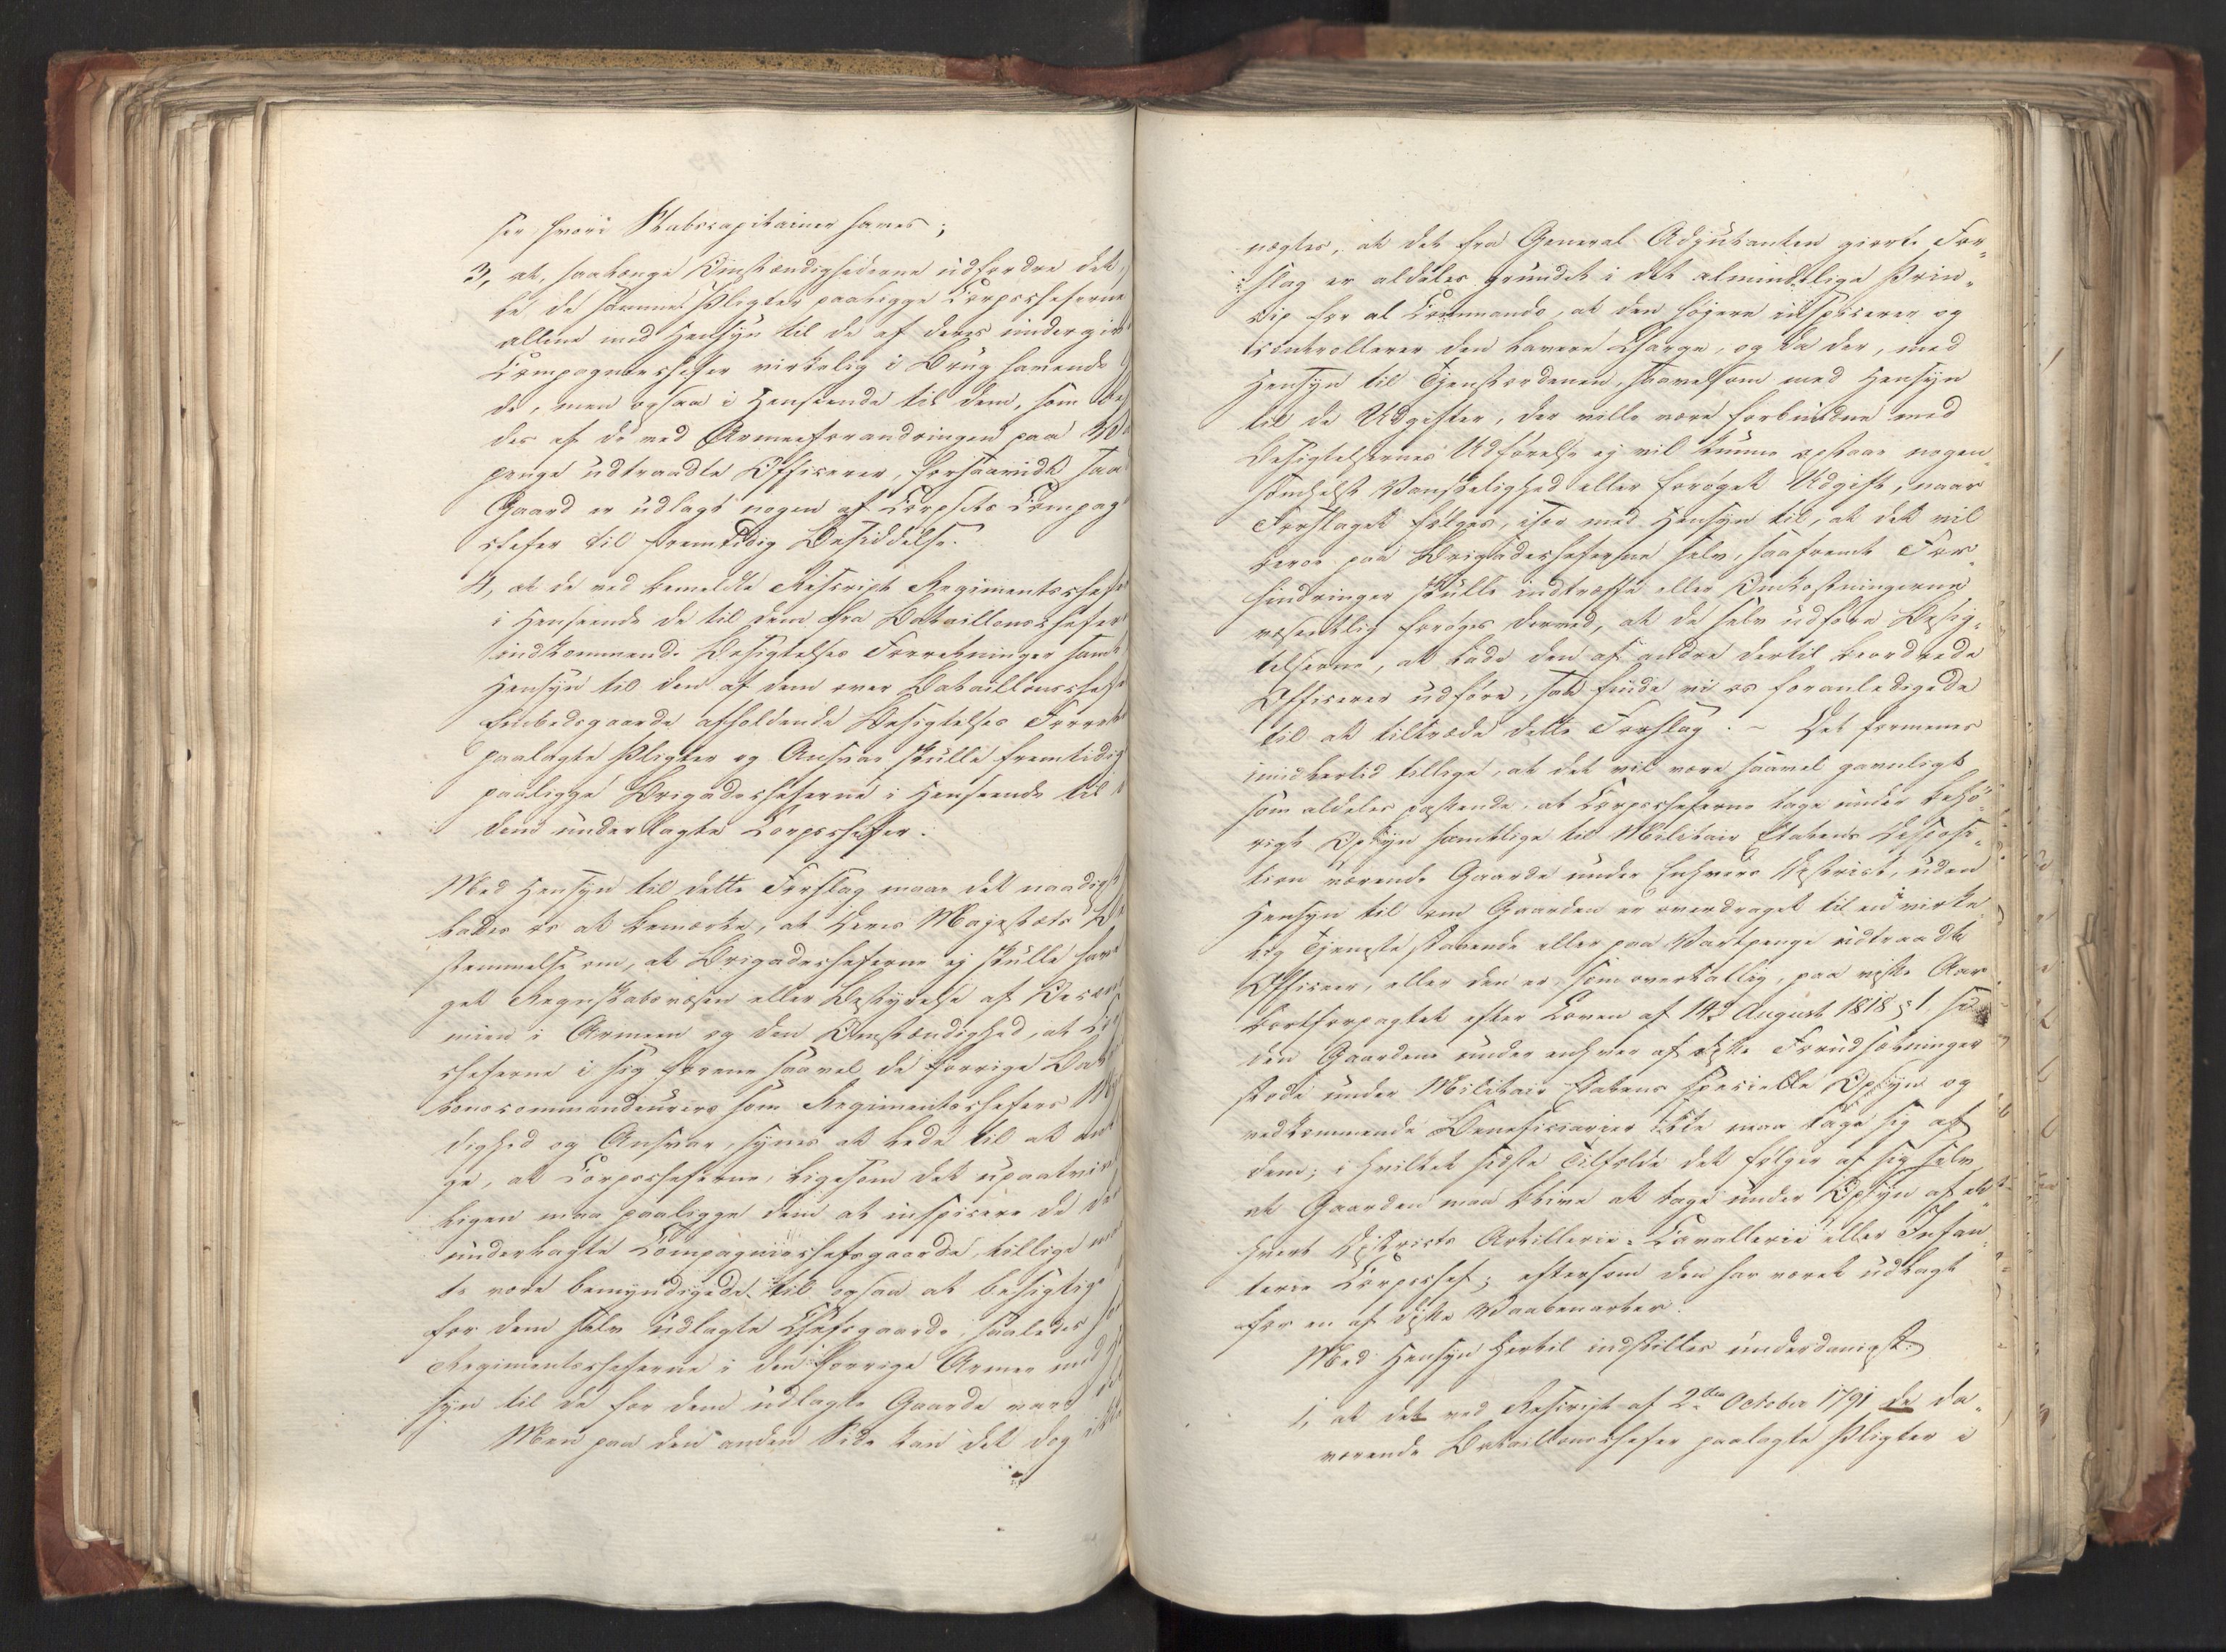 ser hvori Stabscapitainer haves;
3, at, saalænge Omstændighederne udfordre det,
de samme Pligter paaligge Corpscheferne
allene med Hensyn til de af deres undergiv
Compagniechefer virkelig i Brug havende
de, men ogsaa i Henseende til dem, som
des af de ved Armeeforandringen paa
penge udtraadte Officerer, forsaavidt saa
Gaard er udlagt nogen af Corpsets Compag
chefer til fremtidig Besiddelse.
4, at de ved bemeldte Rescript Regimentschefer
i Henseende de til dem fra Bataillonschefer
indkommende Besigtelses Forretninger samt
Hensyn til den af dem over Bataillonschefs
Embedsgaarde afholdende Besigtelses Forret
paalagte Pligter og Ansvar skulle fremtidig
paaligge Brigadecheferne i Henseende til
dem underlagte Corpschefer.
Med Hensyn til dette Forslag maae det naadigst
lades os at bemærke, at Deres Majestæts Be
stemmelse om, at Brigadecheferne ej skulle have
get Regnskabsvæsen eller Bestyrelse af Oecono
mien i Armeen og den Omstændighed, at Co
cheferne i sig forene saavel de forrige Bat
lonscommandeurers som Regimentschefers Myn
dighed og Ansvar, synes at lede til at ant
ge, at Corpscheferne, ligesom det upaatvivl
ligen maa paaligge dem at inspicere de
underlagte Compagniechefsgaarde, tillige
te være bemyndigede til ogsaa at besigtige
for dem selv udlagte Chefsgaarde, saaledes
Regimentscheferne i den forrige Armee med
syn til de for dem udlagte Gaarde vare
Men paa den anden Side kan det dog ikke
nægtes, at det fra General-Adjutanten giorte For-
slag er aldeles grundet i det almindelige Prin-
cip for al Commando, at den høiere inspicerer og
controllerer den lavere Charge, og da der, med
Hensyn til Tjenstordenen, saavelsom med Hensyn
til de Udgifter, der ville være forbundne med
Besigtelsernes Udførelse ej vil kunne opstaae nogen-
somhelst Vanskelighed eller forøget Udgift, naar
Forslaget følges, især med Hensyn til, at det vil
beroe paa Brigadecheferne selv, saafremt For-
hindringer skulle indtræffe eller Omkostningerne
væsentlig forøges derved, at de selv udføre Besig-
telserne, at lade den af andre dertil beordrede
Officerer udføre, saa finde vi os foranledigede
til at tiltræde dette Forslag. – Det formenes
imidlertid tillige, at det vil være saavel gavnligt
som aldeles passende, at Corpscheferne tage under behø-
rigt Opsyn samtlige til Militair Etatens Disposi-
tion værende Gaarde under Enhvers District, uden
Hensyn til om Gaarden er overdraget til en virke-
lig Tjeneste havende eller paa Vartpenge udtraadt
Officeer, eller den er, som overtallig, paa visse Aar
bortforpagtet efter Loven af 14de August 1818 § 1,
den Gaardene under enhver af disse Forudsætninger
stode under Militair Etatens specielle Opsyn og
vedkommende Beneficiarier ikke maa tage sig af
dem; i hvilket sidste Tilfælde det følger af sig selv
at Gaarden maa blive at tage under Opsyn af et-
hvert Districts Artillerie-Cavallerie eller Infan-
terie Corpschef; eftersom den har været udlagt
for en af disse Vaabenarter.
Med Hensyn hertil indstilles underdanigst:
1, at det ved Rescript af 2den October 1791 de da-
værende Bataillonschefer paalagte Pligter i